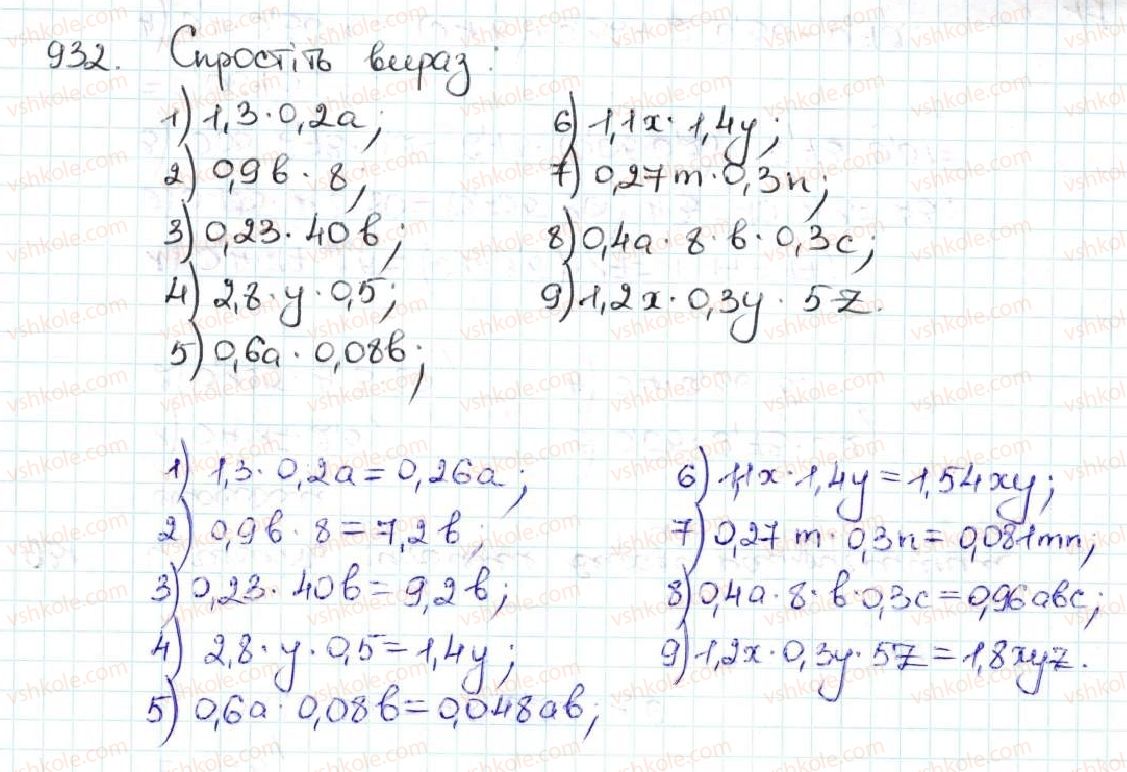 932. Спростіть вираз:
1) 1,3·0,2а;
2) 0,9в·8;
3) 0,23·40в;
4) 2,8·у·0,5;
5) 0,6а·0,08в;
6) 1,1х·1,4у;
7) 0,27m·0,3n;
8) 0,4а·8·в·0,3с;
9) 1,2х·0,3у·5z.
1) 1,3·0,2а=0,26а;
2) 0,9в·8=7,2в;
3) 0,23·40в=9,2в;
4) 2,8·у·0,5=1,4у;
5) 0,6а·0,08в=0,048ав;
6) 1,1х·1,4у=1,54ху;
7) 0,27m·0,3n=0,081mn;
8) 0,4а·8·в·0,3с=0,96авс;
9) 1,2х·0,3у·5z=1,8хуz.
vshkole.com